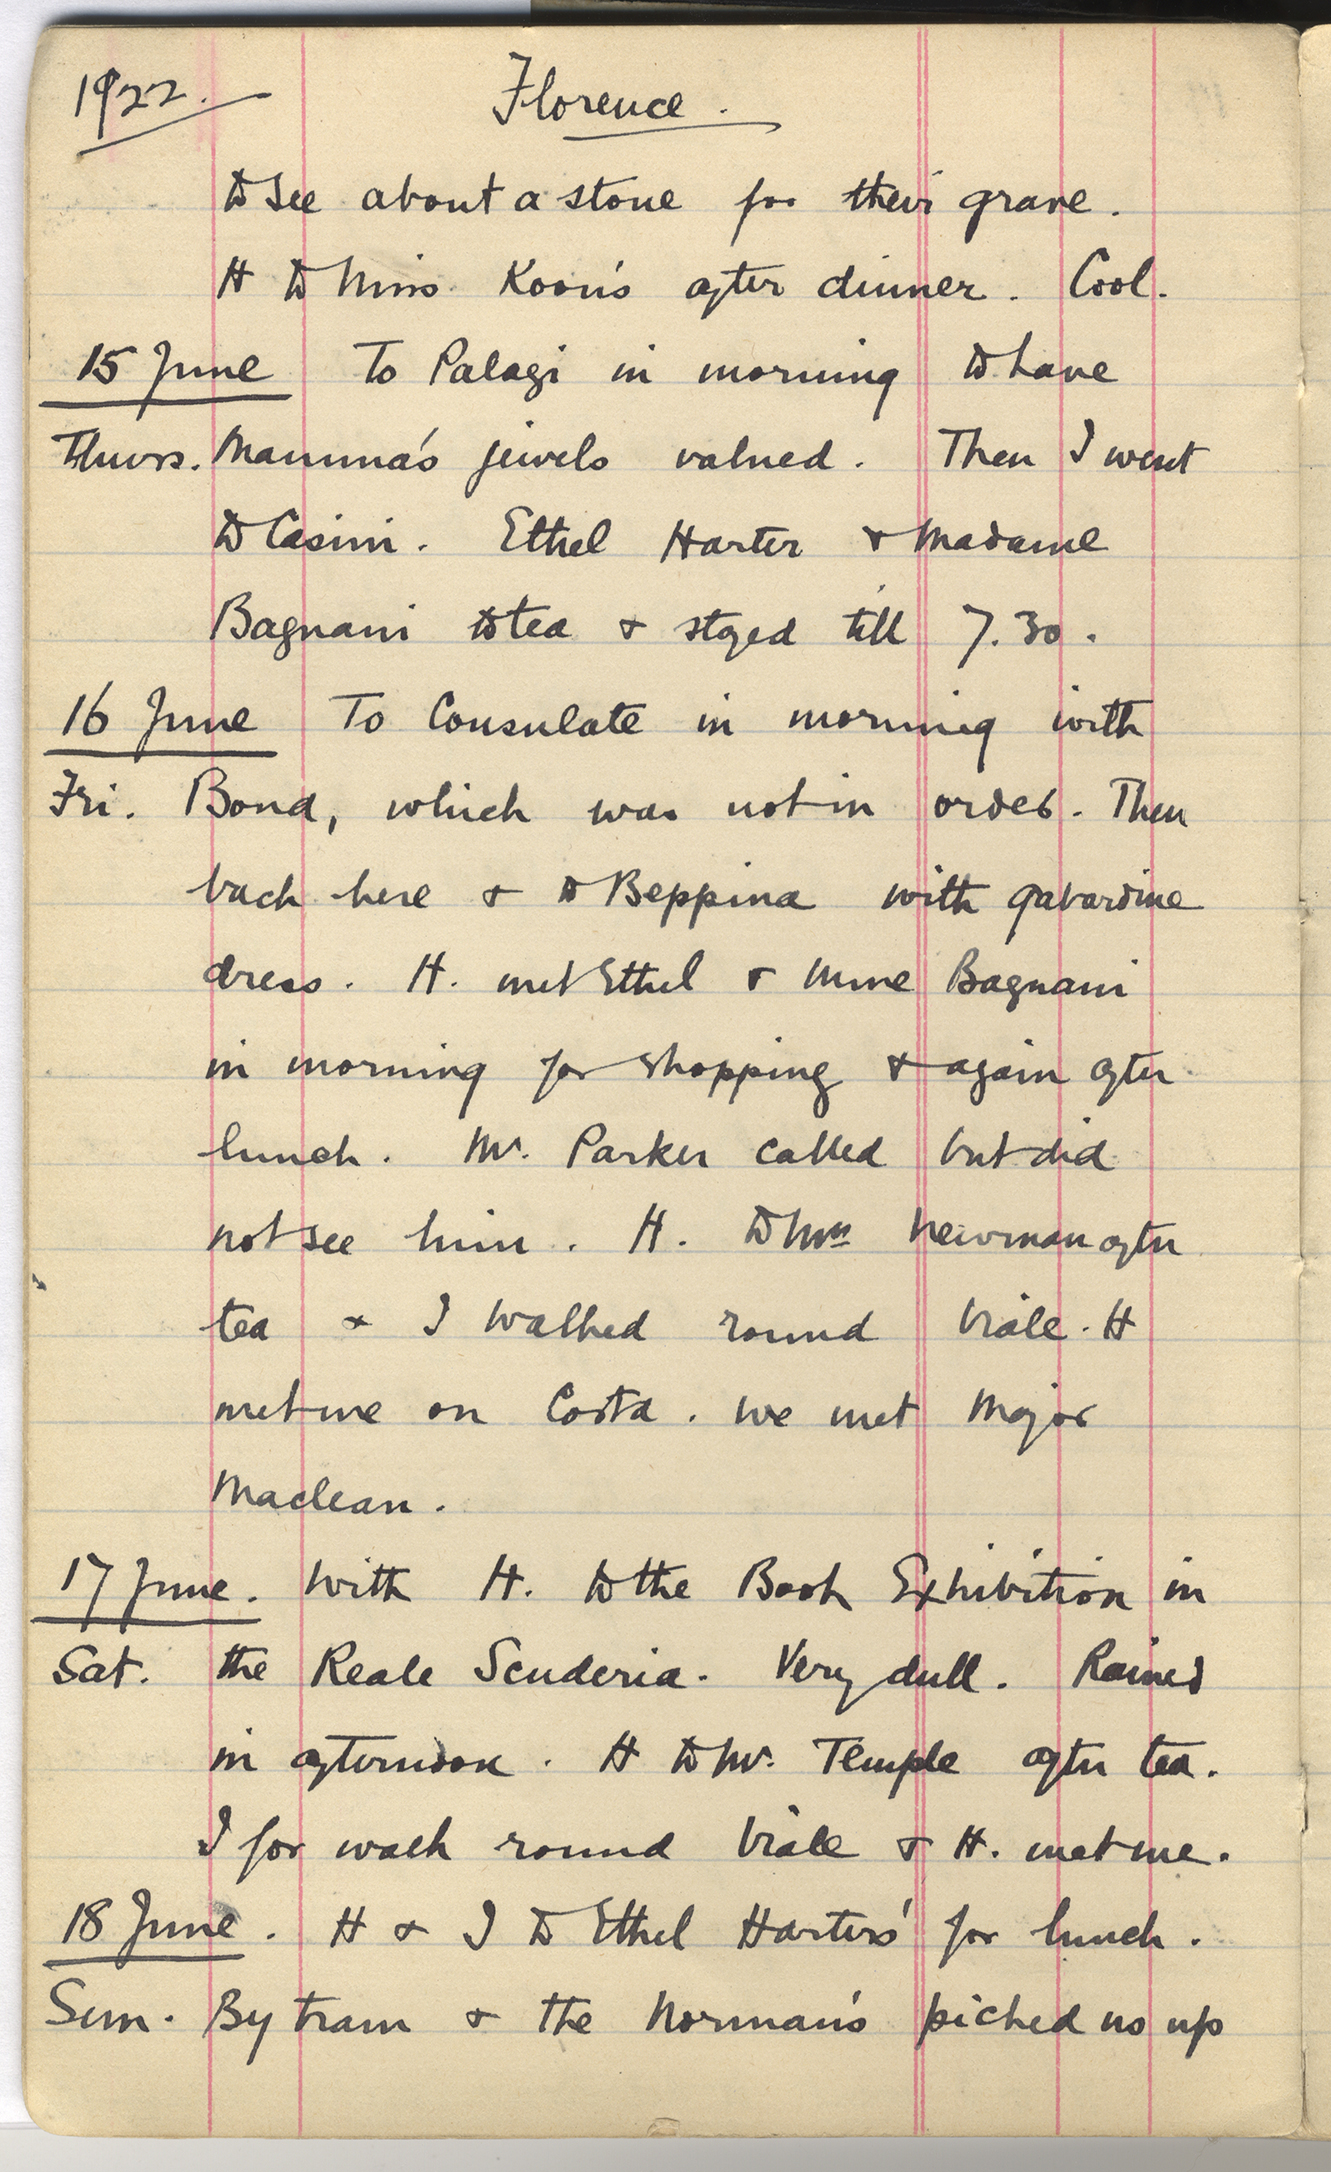 1922. Florence.
to see about a stone for their grave.
H to Miss Koon's after dinner. Cool.
15 June To Palagi in morning to have
Thurs. Mamma's jewels valued. Then I went
to Casini. Ethel Harter & Madame
Bagnani to tea & stayed till 7.30.
16 June To Consulate in morning with
Fri. Bond, which was not in order. Then
back here & to Beppina with gabardine
dress. H. met Ethel & Mme Bagnani
in morning for shopping & again after
lunch. Mr. Parker called but did
not see him. H. to Mrs Newman after
tea & I walked round Viale. H
met me on Costa. We met Major
Maclean.
17 June. With H. to the Book Exhibition in
Sat. the Reale Scuderia. Very dull. Rained
in afternoon. H to Mr. Temple after tea.
I for walk round Viale & H. met me.
18 June. H & I to Ethel Harters' for lunch.
Sun. By tram & the Norman's picked us up